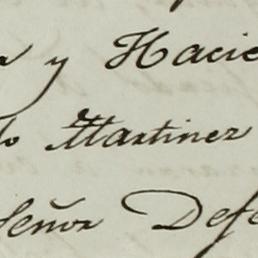 y Hacie
Martinez
Señor Defe